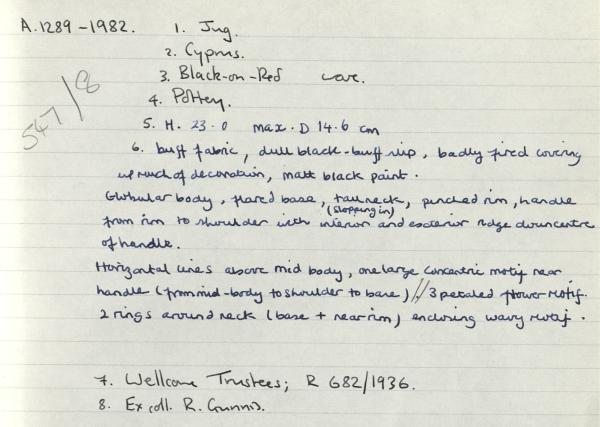 A.1289-1982.
1. Jug.
2. Cyprus.
3. Black-on-Red ware.
4. Pottery.
5. H. 23.0 max. D 14.6 cm
547/8
6. buff fabric, dull black-buff slip, badly fired covering
up much of decoration, matt black paint.
Globular body, flared base, tall neck, pinched rim, handle
(slopping in)
from rim to shoulder with interior and exterior ridge down centre
of handle.
Horizontal lines above mid body, one large concentric motif near
handle (from mid-body to shoulder to base) // 3 petaled flower motif.
2 rings around neck (base + near rim) enclosing wavy motif.
7. Wellcome Trustees; R 682/1936.
8. Ex coll. R. Gunnis.